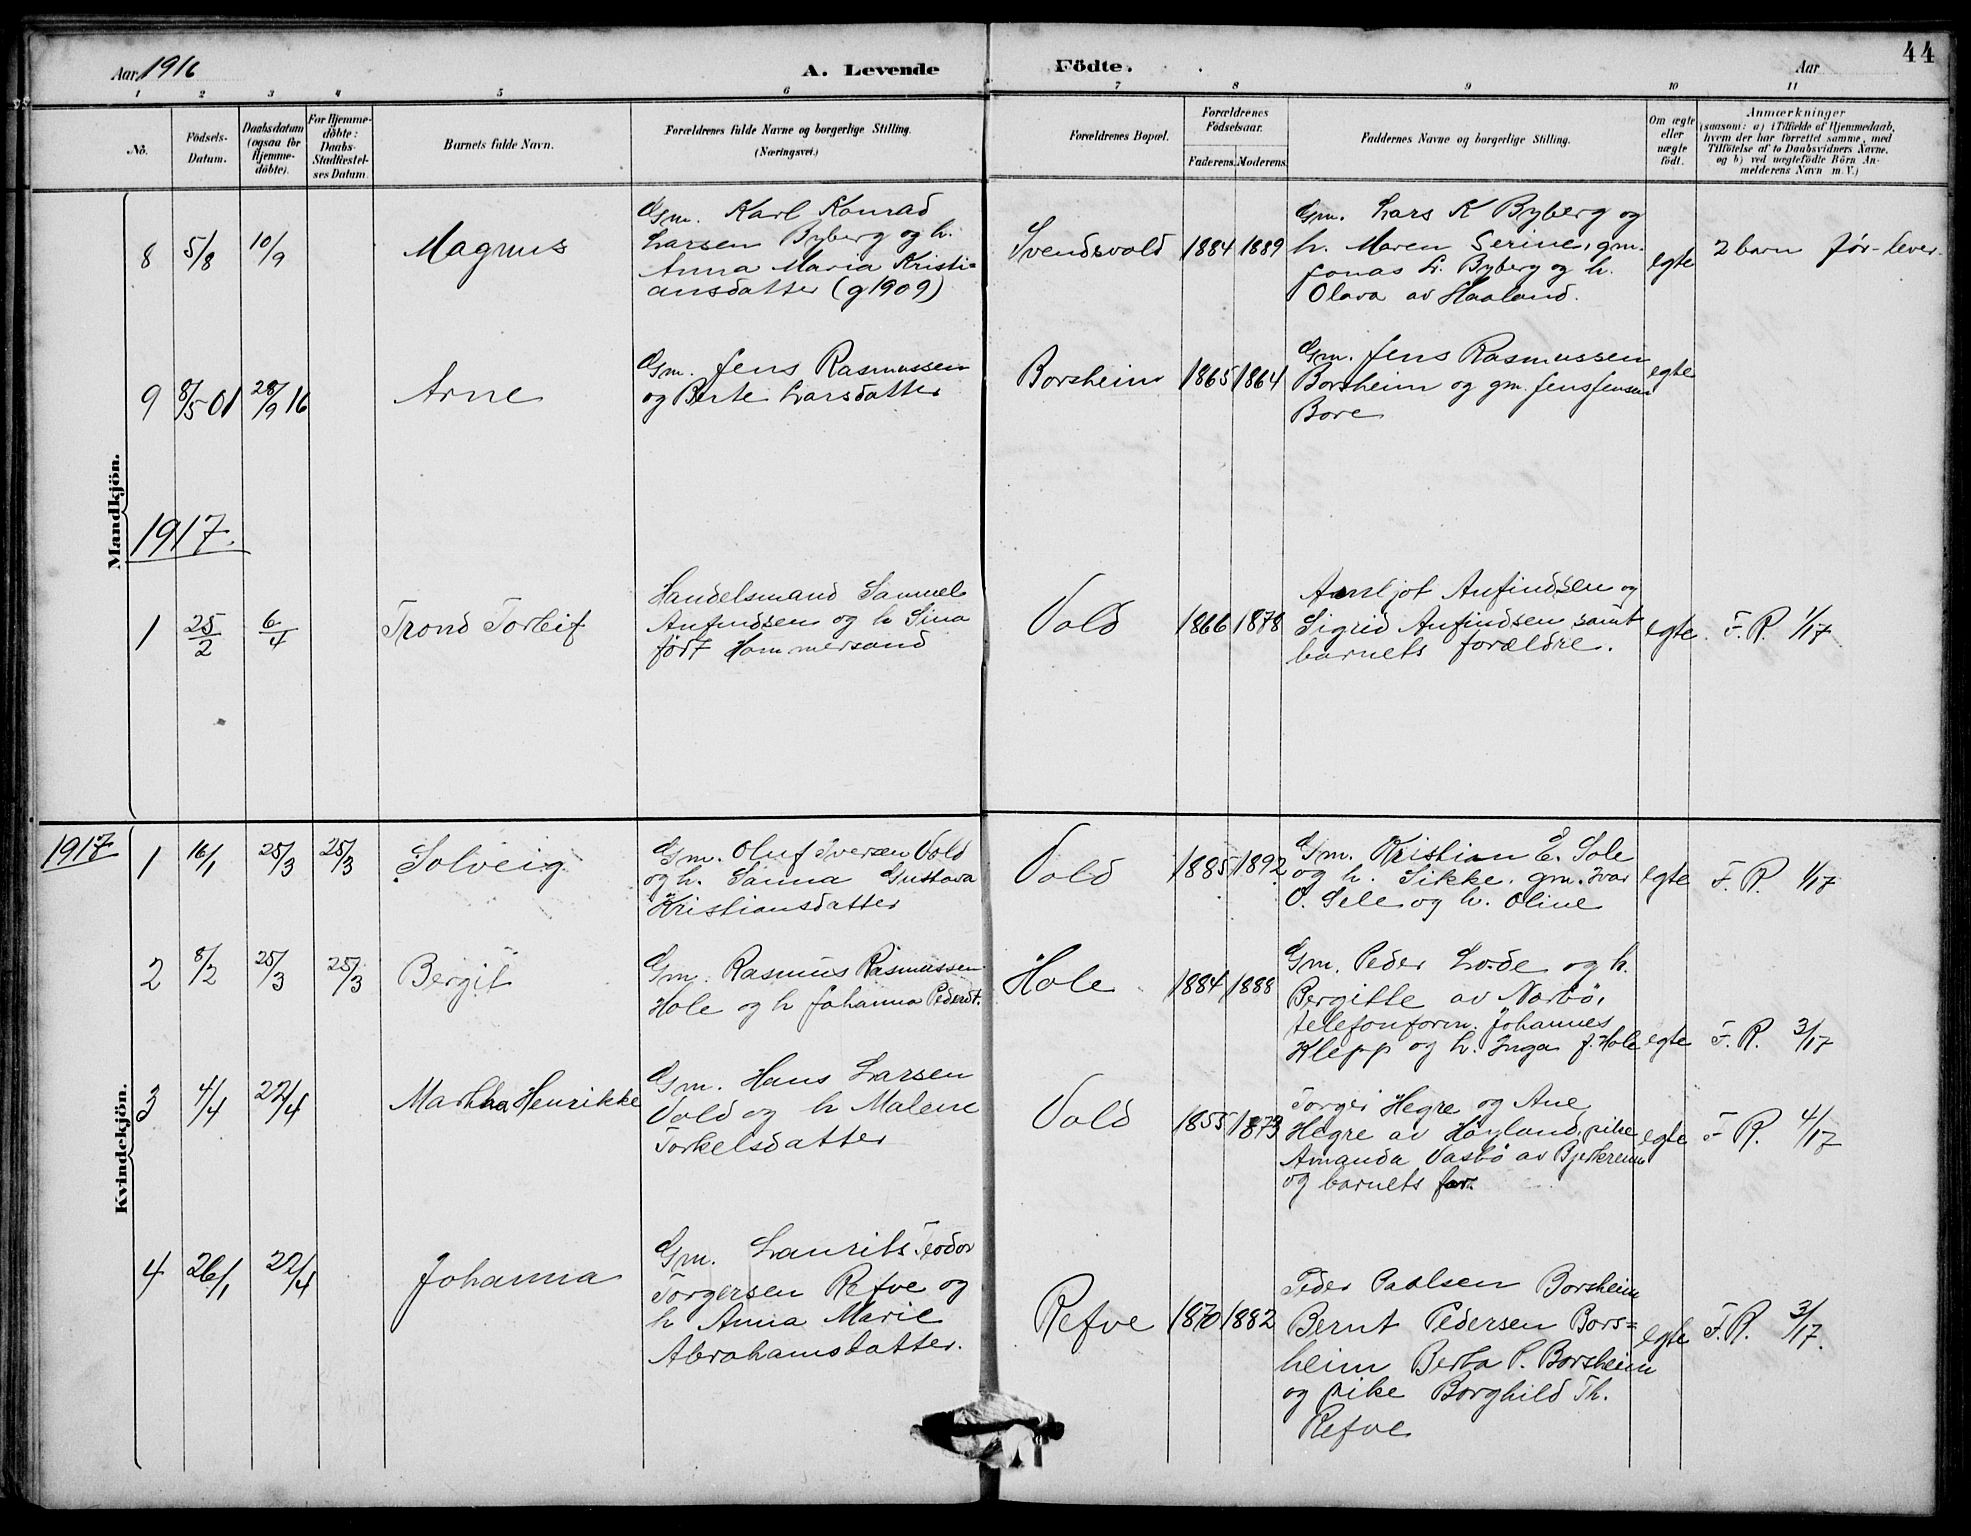 Aar 1916
A. Levende
Födte.
Aar
44
1 2 3 4 5 6 7 8 9 10 11
No.
Födsels-
Datum.
Daabsdatum
(ogsaa for
Hjemme-
döbte).
For Hjemme-
döbte:
Daabs-
Stadfæstel-
ses Datum.
Barnets fulde Navn.
Forældrenes fulde Navne og borgerlige Stilling.
(Næringsvei.)
Forældrenes Bopæl.
Forældrenes
Födselsaar.
Faderens. Moderens.
Faddernes Navne og borgerlige Stilling.
Om ægte
eller
uægte
født.
Anmærkninger
(saasom: a) i Tilfælde af Hjemmedaab,
hvem der har forrettet samme, med
Tilföielse af to Daabsvidners Navne,
og b) ved uægtefödte Börn An-
melderens Navn m. V.)
Mandkjön.
8 5/8 10/9
Magnus
Gm. Karl Konrad
Larsen Byberg og h.
Anna Maria Kristi=
ansdatter (g 1909)
Svendsvold
1884 1889
Gm. Lars K Byberg og
h. Maren Serine, gm.
Jonas L. Byberg og h.
Olava av Haaland.
egte
2 barn før - lever.
9 8/5 01 28/9 16
Arne
Gm. Jens Rasmussen
og Berte Larsdatter
Borsheim
1865 1864
Gm. Jens Rasmussen
Borsheim og gm. Jens Jensen
Bore
egte
1917.
1 25/2 6/4
Trond Torleif
Handelsmand Samuel
Anfindsen og h Sina
født Hommersand
Vold
1866 1878
Arnljot Anfindsen og
Sigrid Anfindsen samt
barnets forældre.
egte
F. R. 1/17
Kvindekjön.
1917
1 16/1 25/3 25/3
Solveig
Gm. Oluf Iversen Vold
og h. Sanna Gustava
Kristiansdatter
Vold
1885 1892
Gm. Kristian E. Sole
og h. Sikke. gm. Ivar
O. Sele og h. Oline
egte
F. R. 1/17
2 8/2 25/3 25/3
Bergit
Gm. Rasmus Rasmussen
Hole og h Johanna Pedersdt.
Hole
1884 1888
Gm. Peder Lode og h.
Bergitte av Narbø,
telefonform. Johannes
Klepp og h. Inga f. Hole
egte
F. R. 3/17
3 4/4 22/4
Martha Henrikke
Gm. Hans Larsen
Vold og h Malene
Torkelsdatter
Vold
1855 1873
Torger Hegre og Ane
Hegre av Høyland, pike
Amanda Vasbø av Bjerkreim
og barnets far.
egte
F R. 4/17
4 26/1 22/4
Johanna
Gm. Laurits Teodor
Torgersen Refve og
h Anna Marie
Abrahamsdatter.
Refve
1870 1882
Peder Paulsen Borsheim
Bernt Pedersen Bors=
heim Berta P. Borsheim
og pike Borghild Th.
Refve
egte
F. R. 3/17.